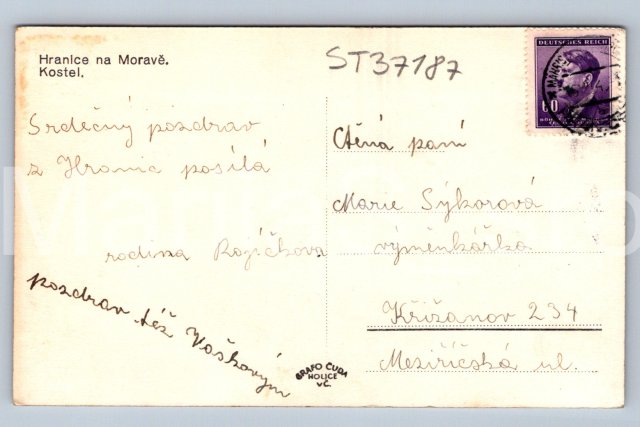 Hranice na Moravě.
Kostel.
ST37187
DEUTSCHES REICH
60
Srdečný pozdrav
z Hranic posílá
rodina Rojíčkova
pozdrav též Vaškovým
Ctěná paní
Marie Sýkorová
výměnkářka
Křižanov 234
Meziříčská ul.
GRAFO ČUDA
HOLICE
v Č.